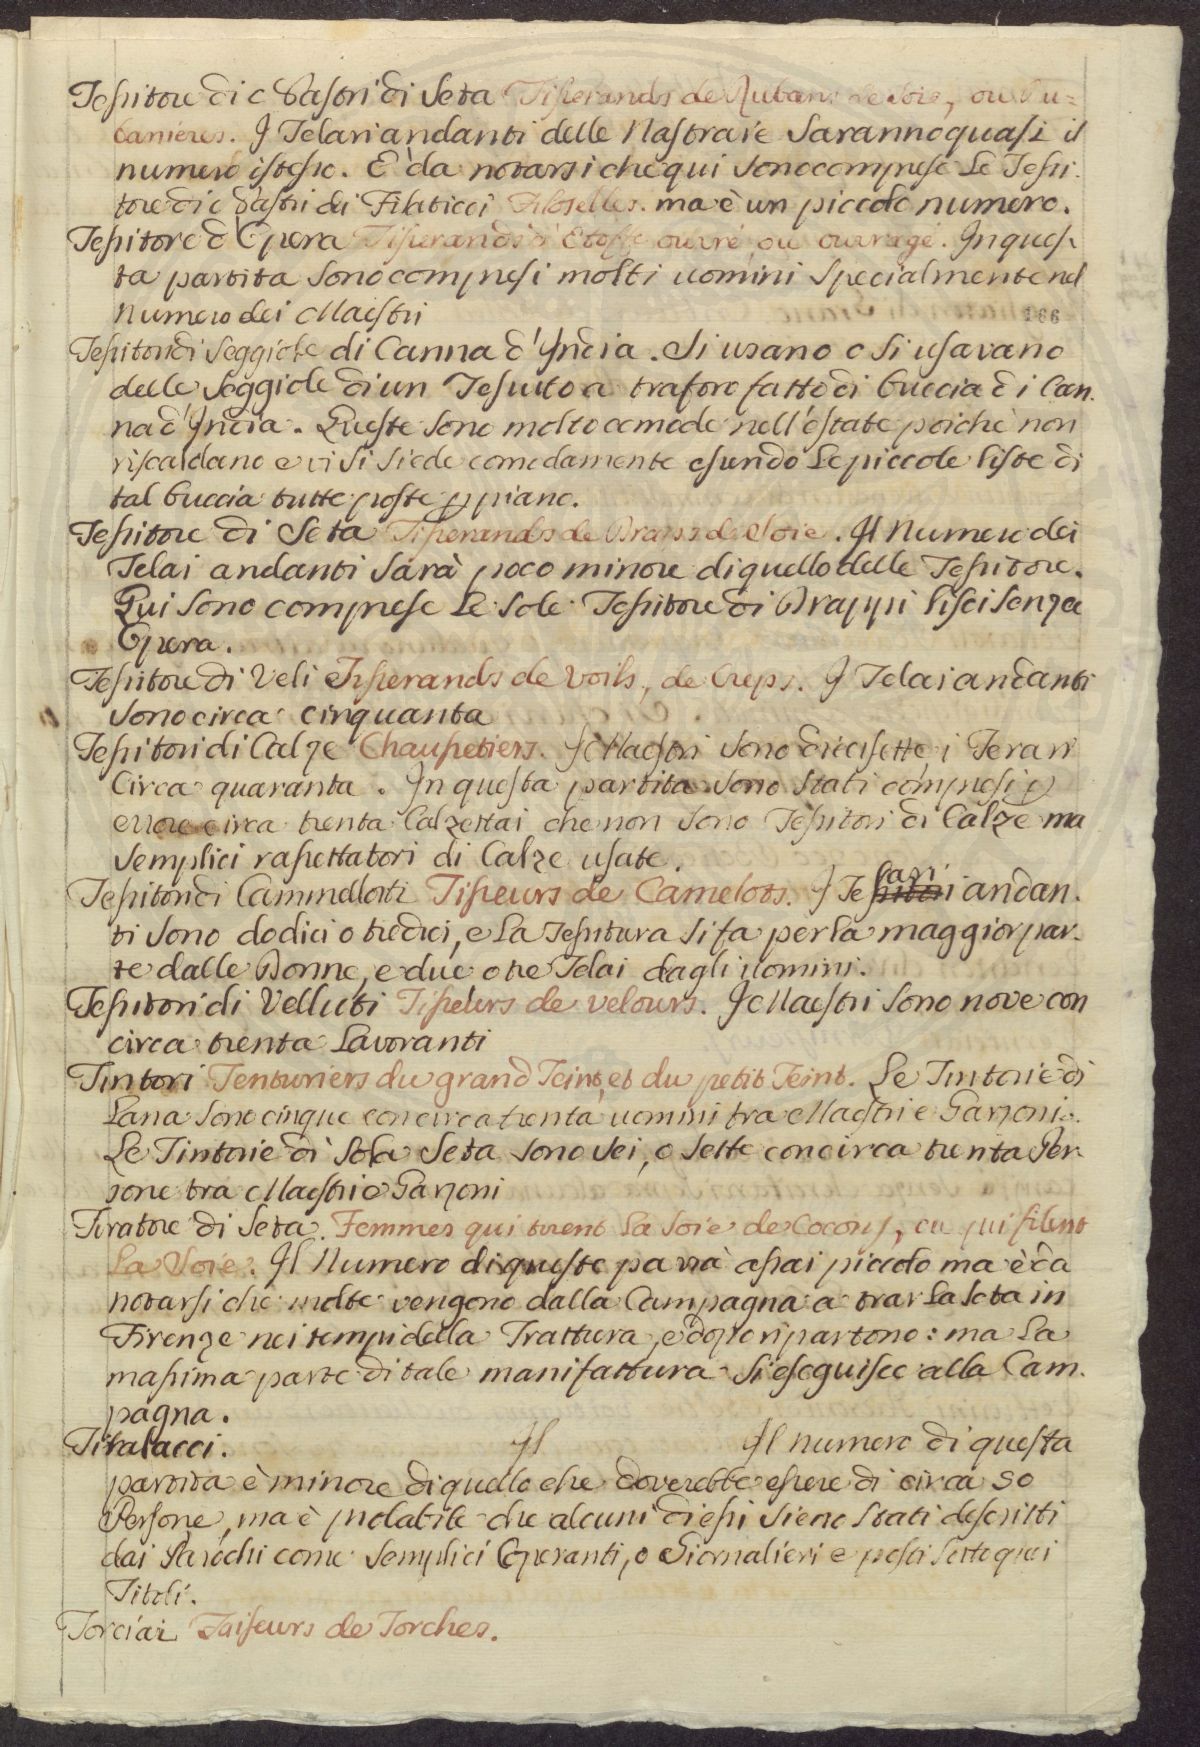 Tessitore di Nastri di Seta Tisserands de Rubans de Soie, ou Ru=
banières. I Telari andanti delle Nastraie Saranno quasi il
numero istesso. E' da notarsi che qui sono comprese Le Tessi-
tore di Nastri di Filaticci Filoselles. ma è un piccolo numero.
Tessitore d'Opera Tisserands d'Etoffe ouvré, ou ouvragé. In ques-
ta partita sono compresi molti uomini Specialmente nel
Numero dei Maestri
166
Tessitori di Seggiole di Canna d'India. Si usano o si usavano
delle Seggiole di un Tessuto a traforo fatto di buccia di Can-
na d'India. Queste sono molto comode nell'estate poichè non
riscaldano e vi si siede comodamente essendo Le piccole liste di
tal buccia tutte poste p piano.
Tessitore di Seta Tisserands de Draps de Soie. Il Numero dei
Telai andanti Sarà poco minore di quello delle Tessitore.
Qui sono comprese Le sole Tessitore di Drappi lisci senza
Opera.
Tessitore di Veli Tisserands de Voils, de Creps. I Telai andanti
Sono circa cinquanta
Tessitori di Calze Chaussetiers. I Maestri Sono diecisette, i Ferari
Circa quaranta. In questa partita sono stati compresi p
errore circa trenta Calzettai che non sono Tessitori di Calze ma
Semplici rassettatori di Calze usate.
Tessitori di Cammellotti Tisseurs de Camelots. I Telari andan-
ti sono dodici o tredici, e La Tessitura si fa per La maggior par-
te dalle Donne, e due o tre Telai dagli uomini.
Tessitori di Velluti Tisseurs de velours. I Maestri sono nove con
circa trenta Lavoranti
Tintori Tenturiers du grand Teint, et du petit Teint. Le Tintorie di
Lana sono cinque con circa trenta uomini tra Maestri e Garzoni.
Le Tintorie di Sola Seta sono Sei, o Sette con circa trenta Per-
sone tra Maestri e Garzoni
Tiratore di Seta. Femmes qui tirent La Soie de Cocons, ou qui filent
La Soie. Il Numero di queste parrà assai piccolo ma è da
notarsi che molte vengono dalla Campagna a trar La Seta in
Firenze nei tempi della Trattura, e dopo ripartono: ma La
massima parte di tale manifattura si eseguisce alla Cam-
pagna.
Tiralacci. Il Il numero di questa
partita è minore di quello che doverebbe essere di circa 50
Persone, ma è probabile che alcuni di essi sieno stati descritti
dai Parochi come Semplici Operanti, o Giornalieri e posti sotto quei
Titoli.
Torciai Faiseurs de Torches.